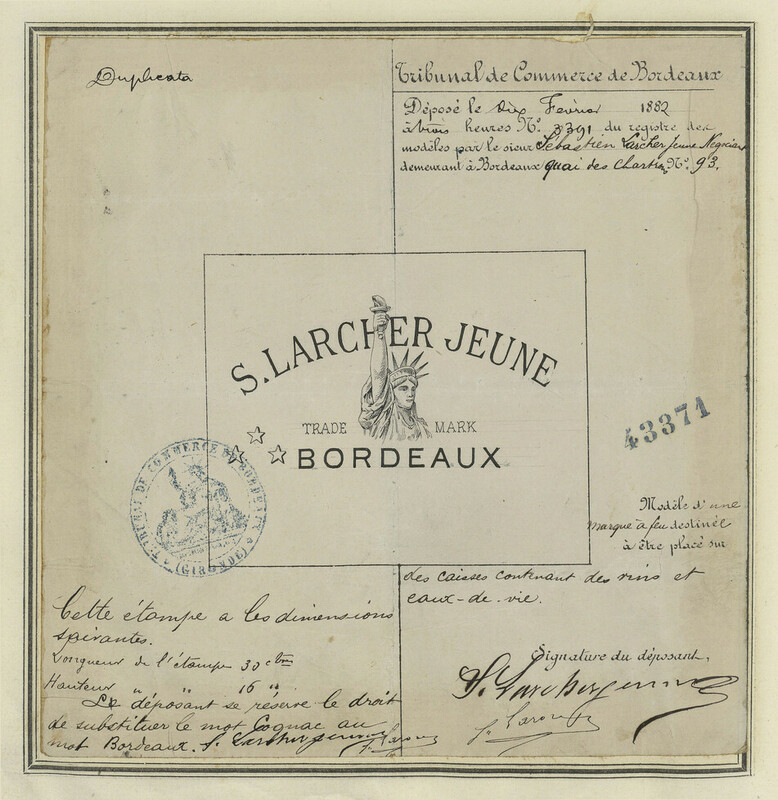 Duplicata
Tribunal de Commerce de Bordeaux
Déposé le dix Fevrier 1882
à trois heures N° 3391 du registre des
modèles par le sieur Sébastien Larcher Jeune Negociant
demeurant à Bordeaux quai des Chartrons N° 93.
S. LARCHER JEUNE
TRADE MARK
BORDEAUX
T. BUNAL DE COMMERCE DE BORDEAUX
(GIRONDE)
43371
Modèle d'une
marque à feu destinée
à être placé sur
des caisses contenant des vins et
eaux-de-vie.
Cette étampe a les dimensions
suivantes.
Longueur de l'étampe 30 ctm
Hauteur " " 16 "
Le déposant se réserve le droit
de substituer le mot Cognac au
mot Bordeaux. S. Larcher jeune
Signature du déposant,
S. Larcher jeune